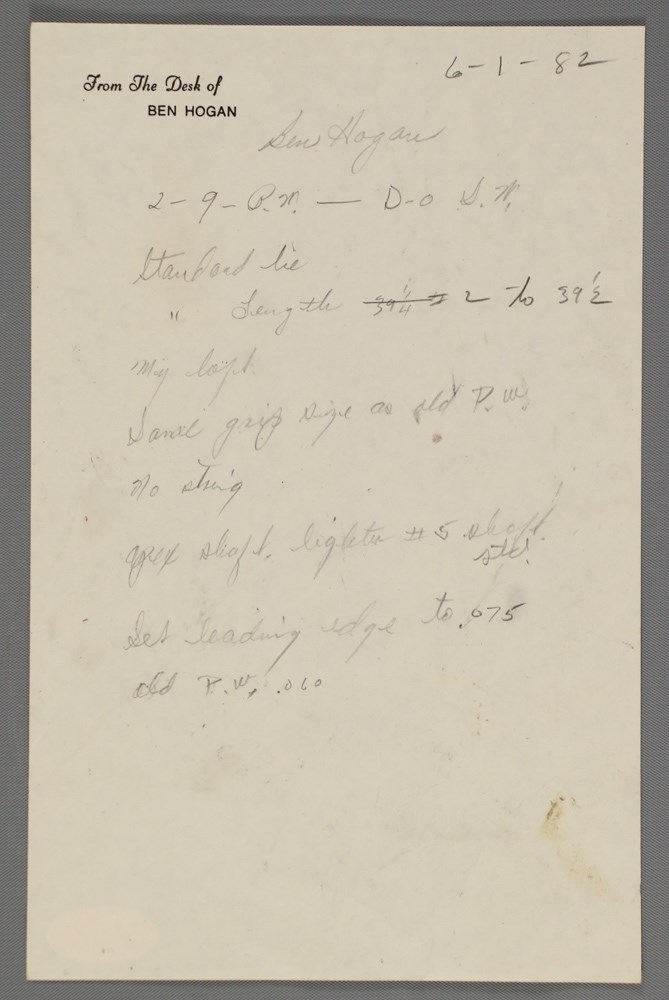 From The Desk of
BEN HOGAN
6-1-82
Ben Hogan
2-9-P.W. — D-0 S.W.
Standard lie
" Length 39 1/4 # 2 to 39 1/2
My loft
Same grip size as old P.W.
No string
Apex shaft, lighter #5 shaft.
std.
Set leading edge to .075
old P.W. .060